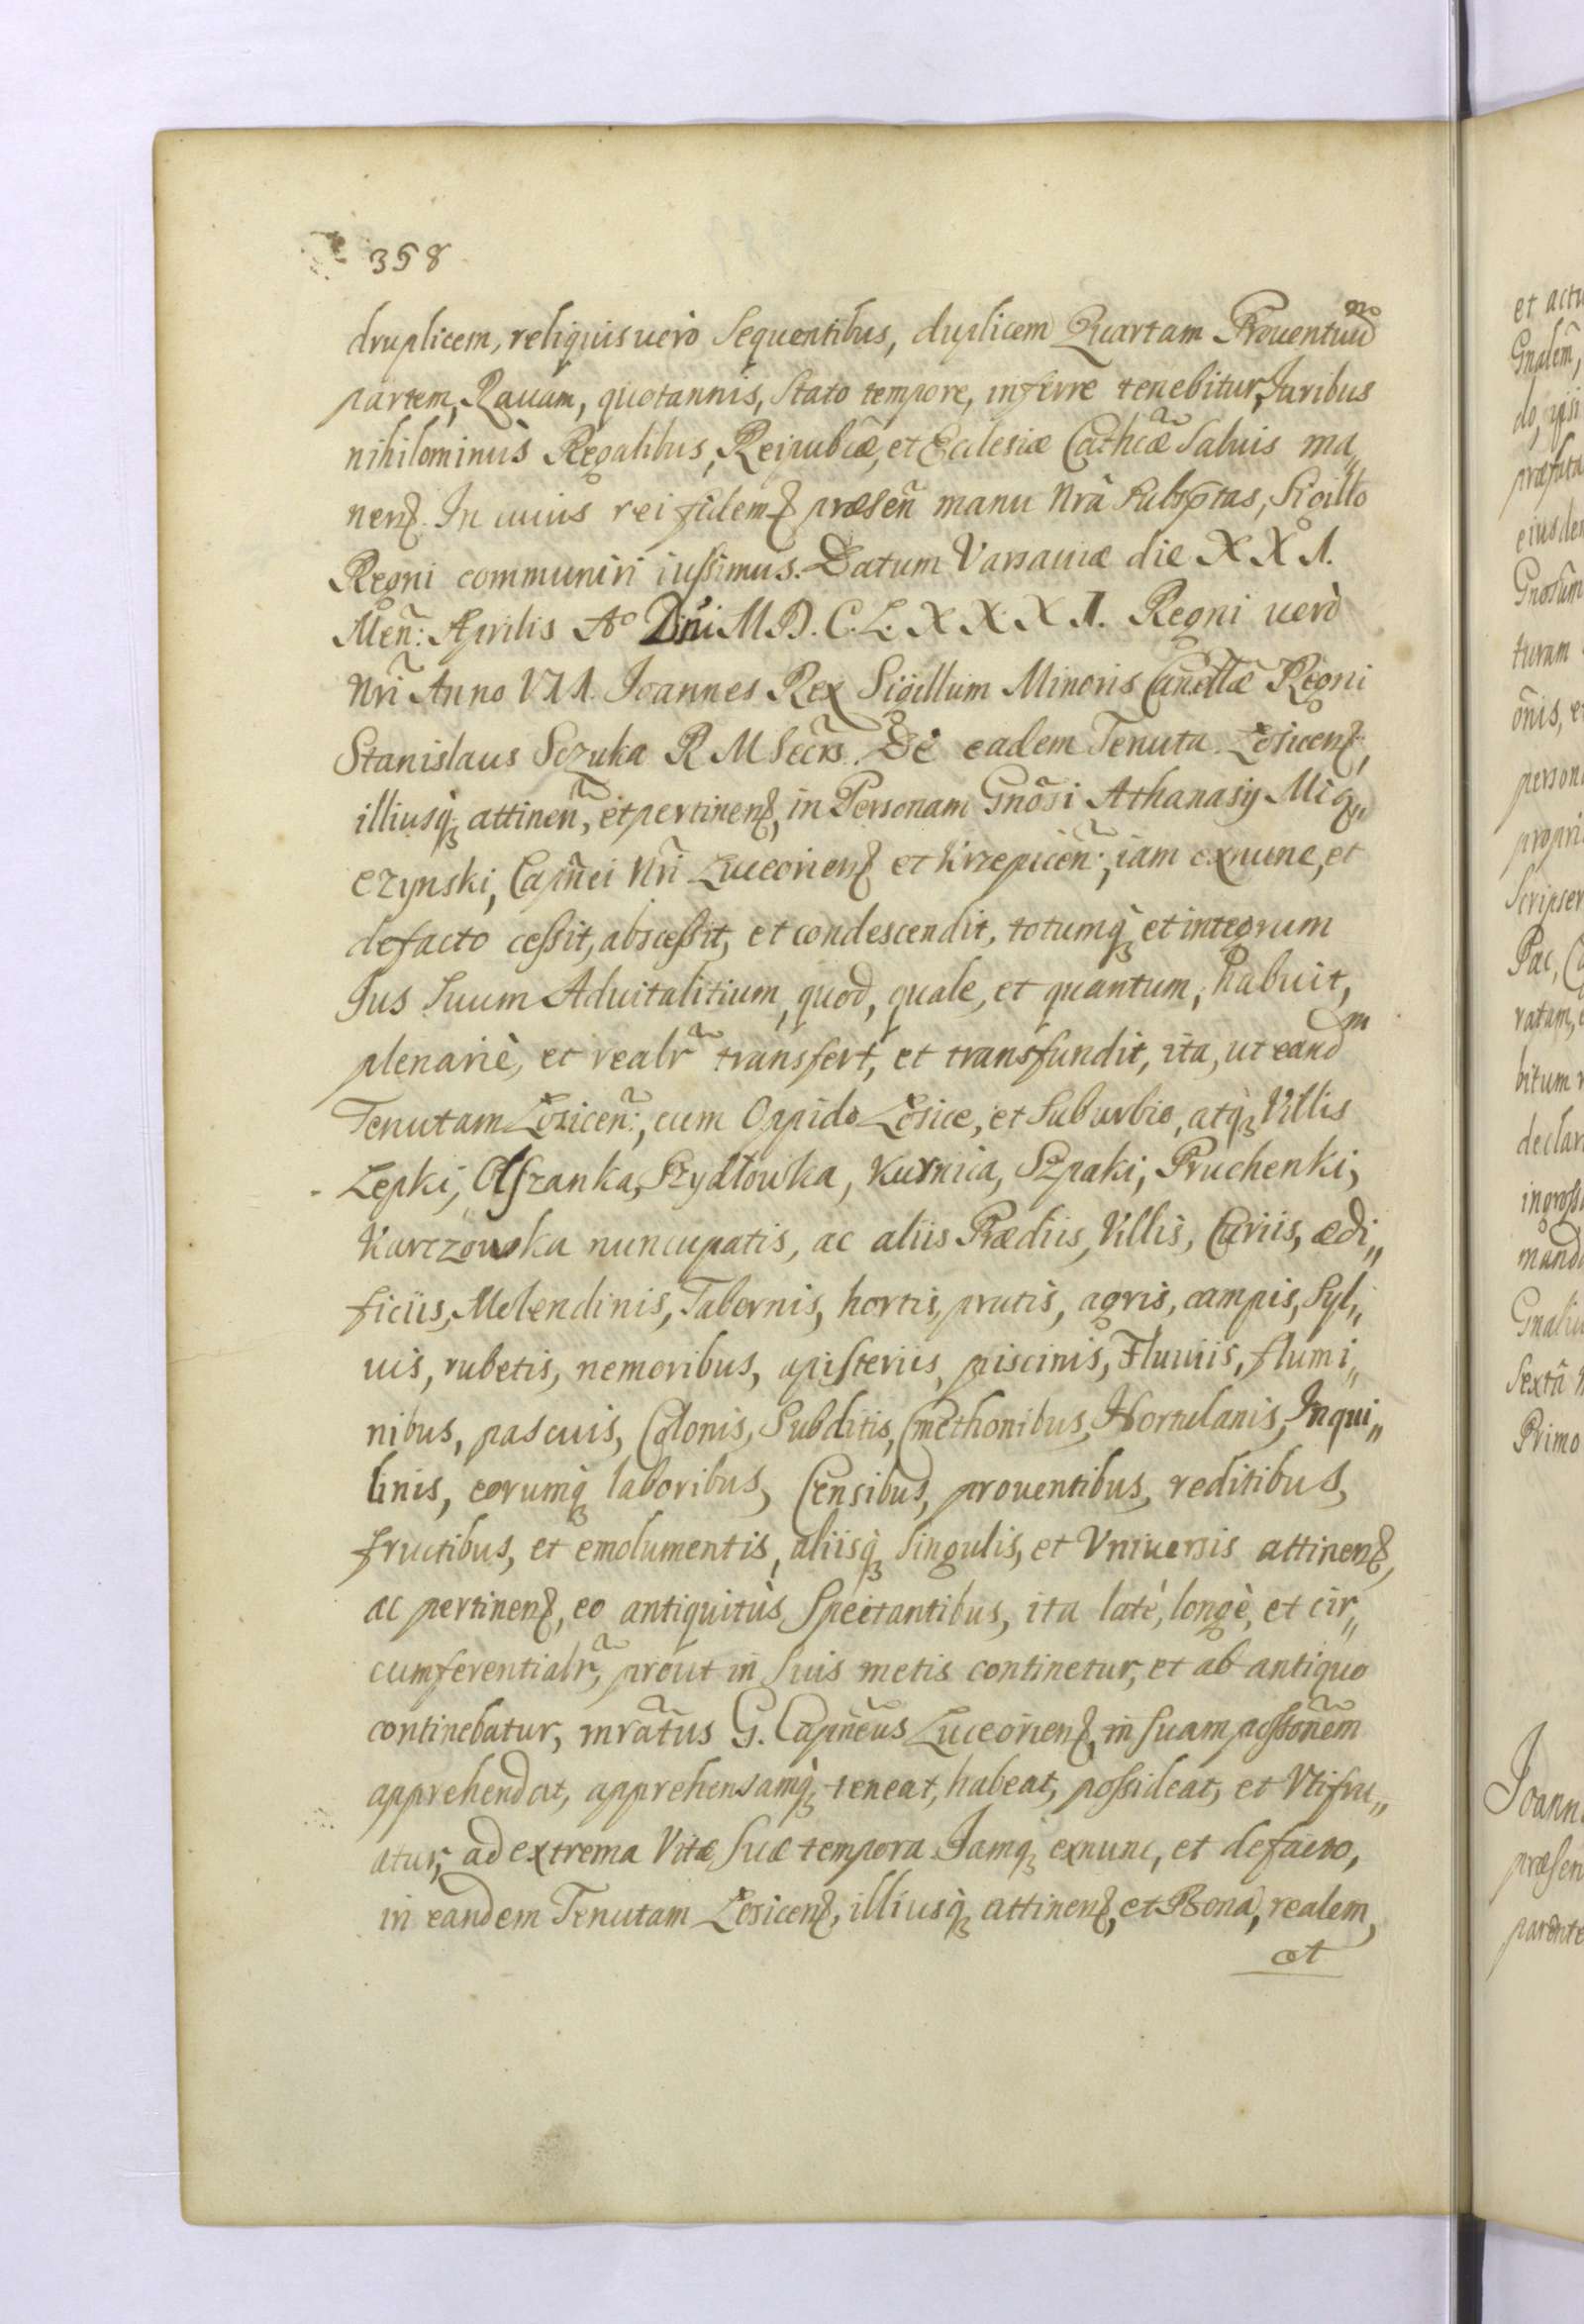 358
druplicem, reliquis uerò Sequentibus, duplicem Quartam Prouentuũ
partem, Rauam, quotannis, Stato tempore, inferre tenebitur, Juribus
nihilominùs Regalibus, Reipublcæ, et Ecclesiæ Cathcæ Saluis ma„
nenẛ. In cuius rei fidem præseñ manu Nrã Subsptas, Sigillo
Regni communiri iussimus. Datum Varsauiæ die XXI.
Meñ: Aprilis Aº Dñi M.D.C.LXXXI. Regni uerò
Nri Anno VII. Joannes Rex Sigillum Minoris Cancellæ Regni
Stanislaus Sczuka R M Secrs. De eadem Tenuta Łosicenẛ,
illiusq; attineñ, et pertinenẛ, in Personam Gnosi Athanasij Mią„
czynski, Capñei Nri Luceorienẛ et Krzepiceñ:, iam exnunc, et
defacto cessit, abscessit, et condescendit, totumq; et integrum
Jus Suum Aduitalitium, quod, quale, et quantum, habuit,
plenariè, et realr transfert, et transfundit, ita, ut eandm
Tenutam Łosiceñ:, cum Oppido Łosice, et Suburbio, atq; Villis
Łepki, Olszanka, Szydłowka, Kurnica, Szpaki, Pruchenki,
Karczowka nuncupatis, ac aliis Prædiis, Villis, Curiis, ædi„
ficiis, Molendinis, Tabernis, hortis, pratis, agris, campis, Syl„
uis, rubetis, nemoribus, apisteriis, piscinis, Fluuiis, flumi„
nibus, pascuis, Colonis, Subditis, Cmethonibus, Hortulanis, Inqui„
linis, eorumq; laboribus, Censibus, prouentibus, reditibus,
fructibus, et emolumentis, aliisq; Singulis, et Vniuersis attinenẛ,
ac pertinenẛ, eo antiquitùs Spectantibus, ita latè, longè, et cir„
cumferentialr, prout in Suis metis continetur, et ab antiquo
continebatur, mratus G. Capñeus Luceorienẛ, in Suam possoñem
apprehendat, apprehensamq; teneat, habeat, possideat, et Vtifru„
atur, ad extrema Vitæ Suæ tempora. Jamq; exnunc, et defacto,
in eandem Tenutam Łosicenẛ, illiusq; attinenẛ, et Bona, realem,
et